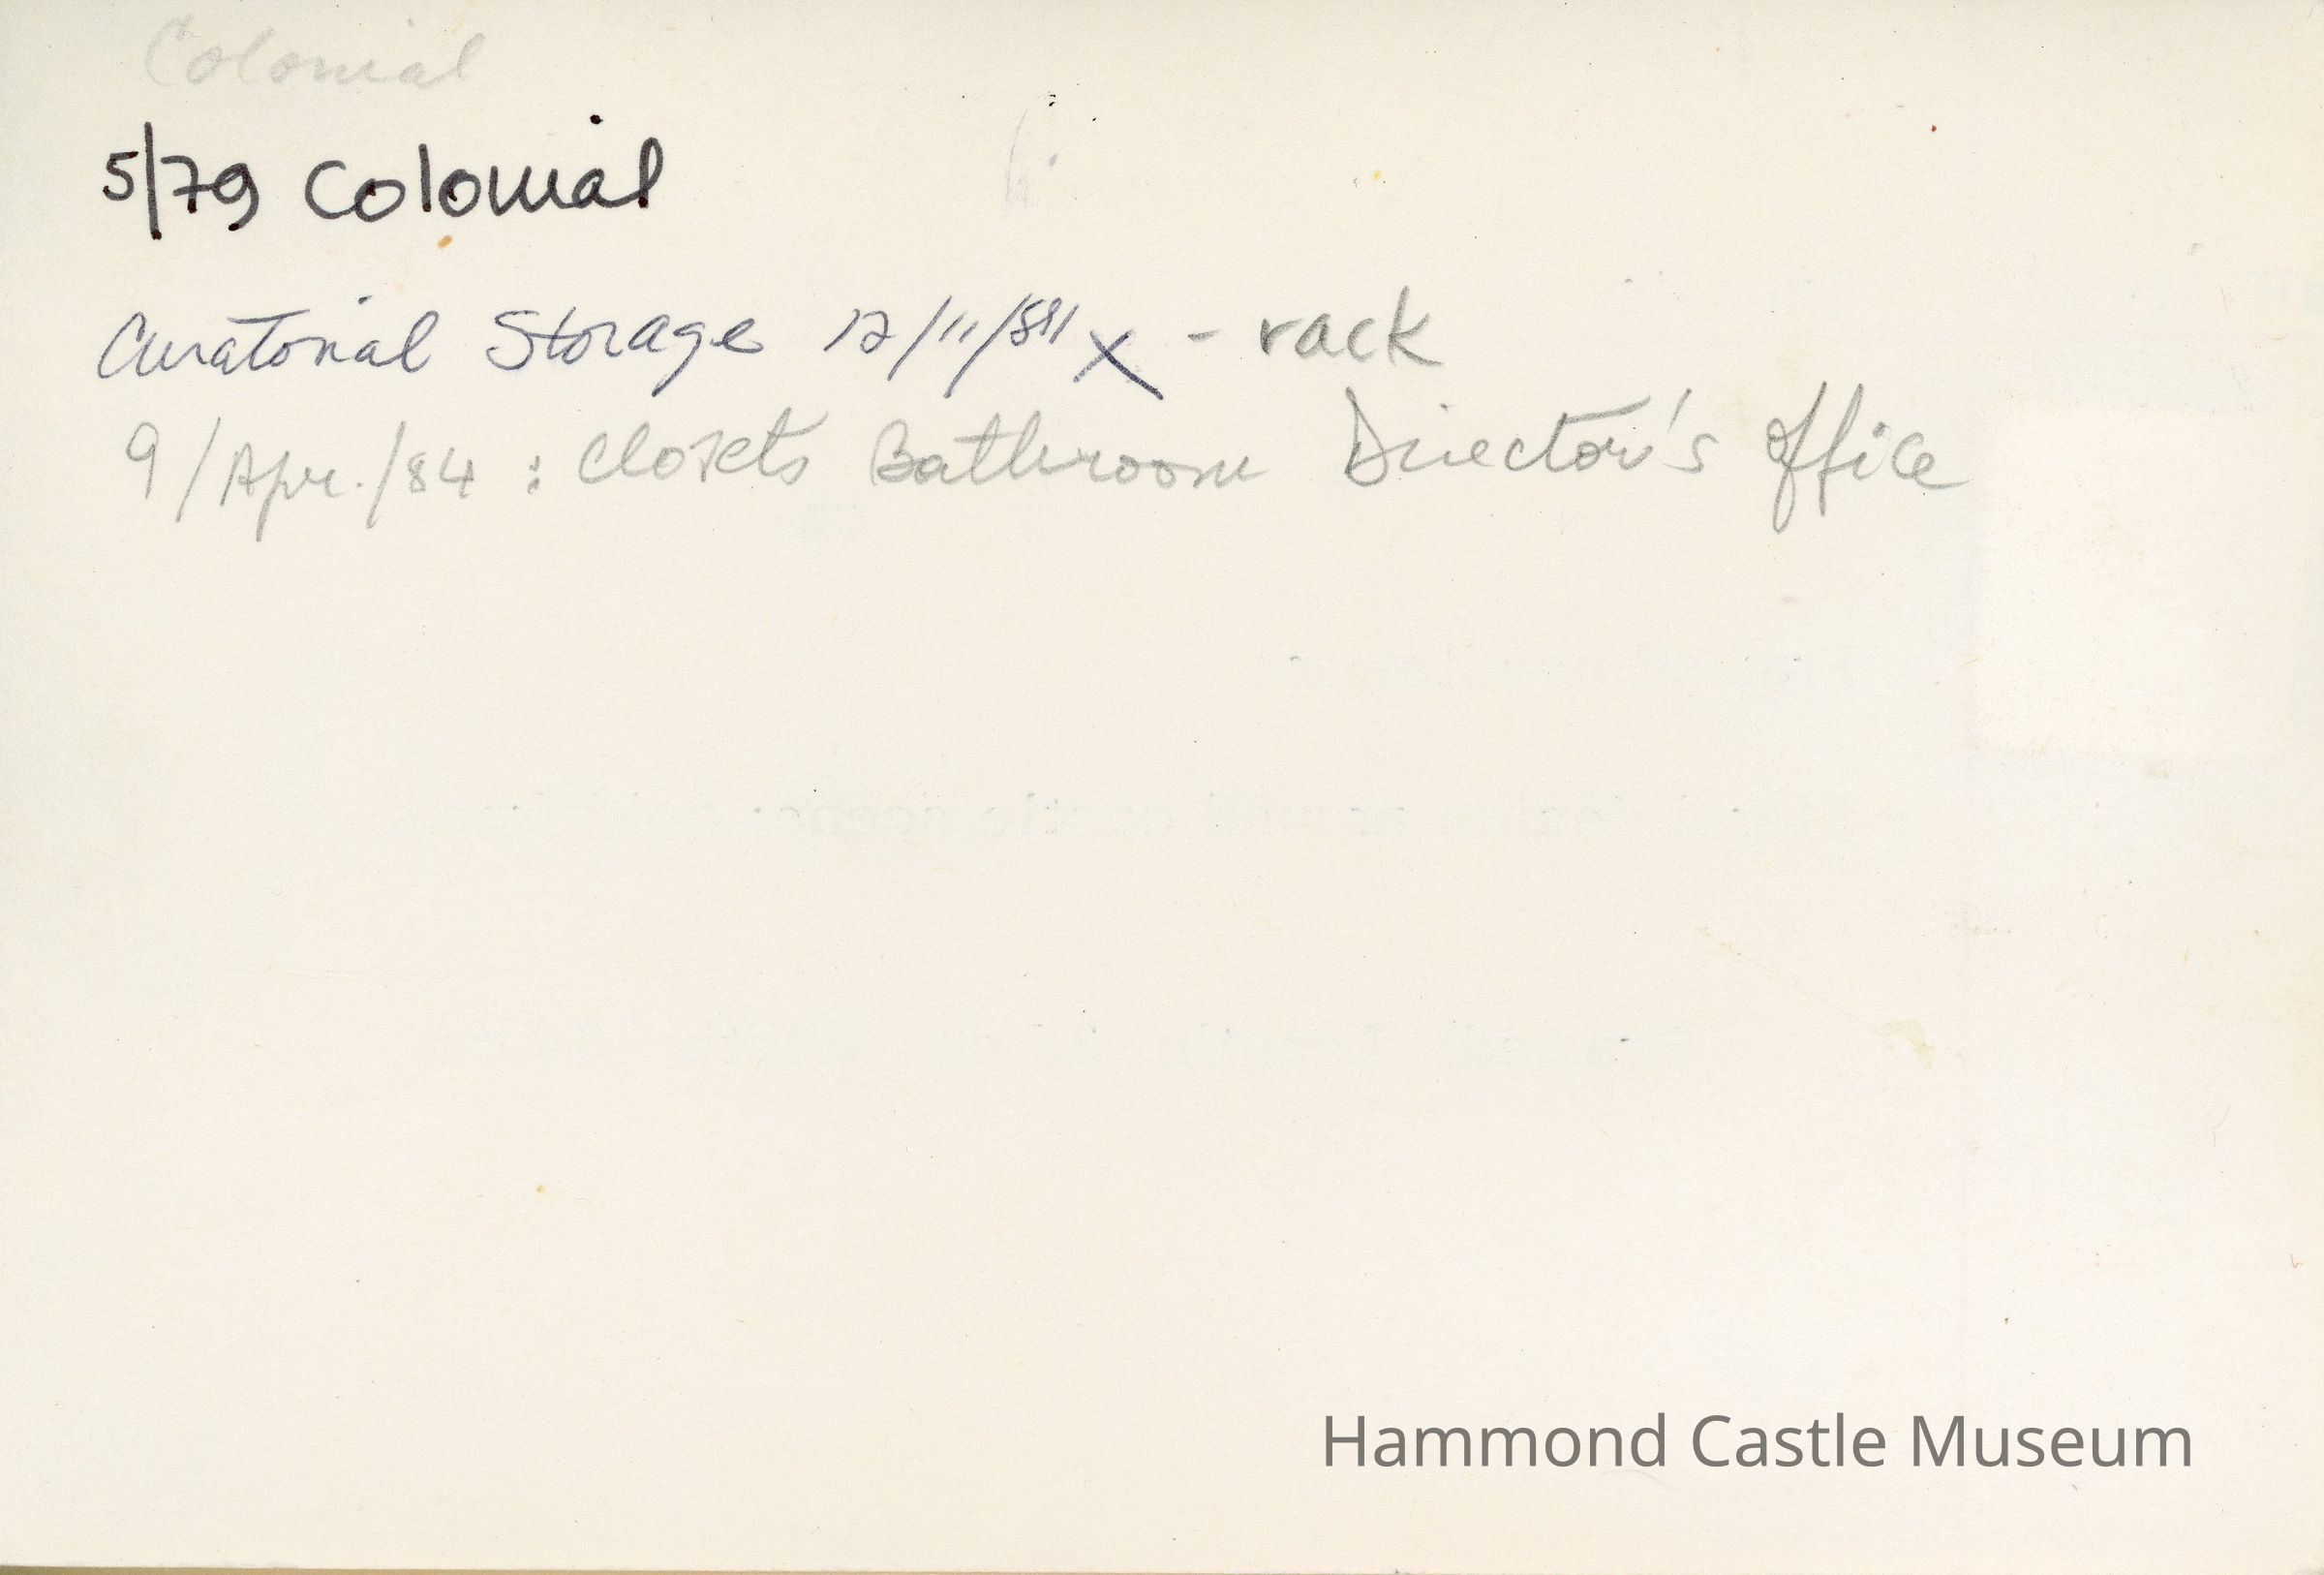 Colonial
5/79 Colonial
Curatorial Storage 12/11/81 X - rack
9/Apr./84 : Closets Bathroom Director's Office
Hammond Castle Museum